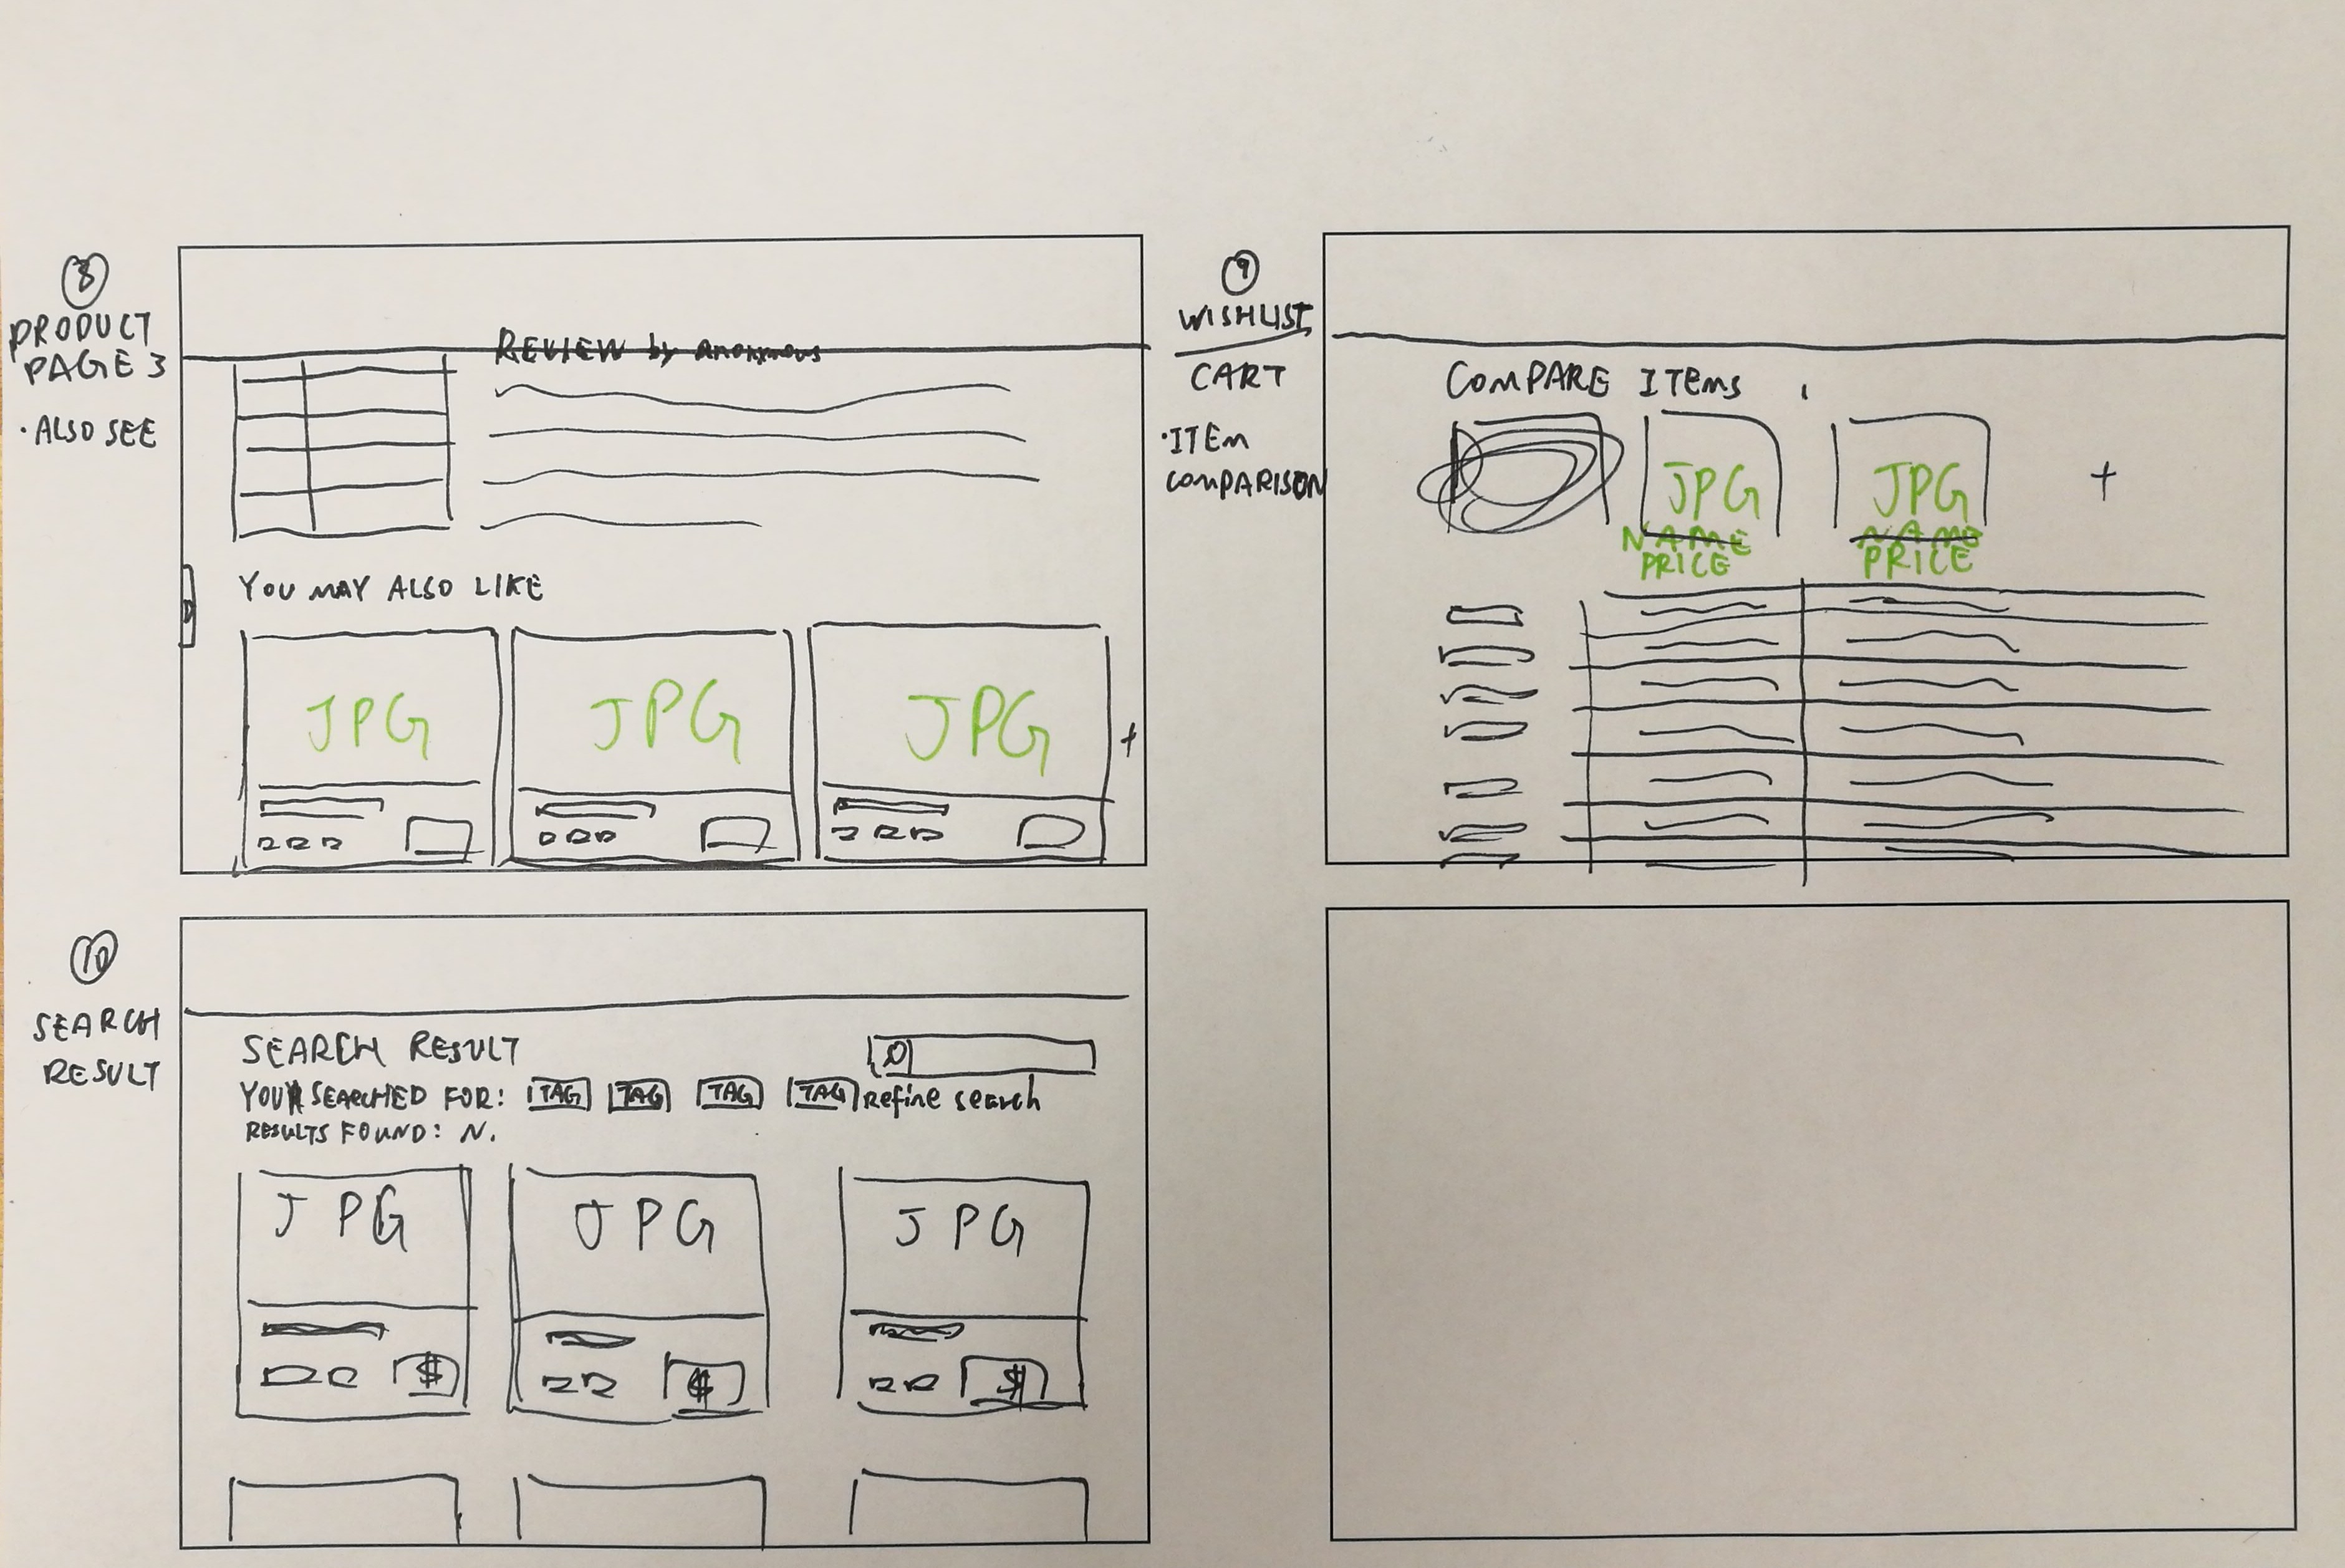 8
PRODUCT
PAGE 3
· ALSO SEE
REVIEW by Anonymous
YOU MAY ALSO LIKE
JPG JPG JPG +
9
WISHLIST
CART
· ITEM
COMPARISON
COMPARE ITEMS
JPG JPG +
NAME NAME
PRICE PRICE
10
SEARCH
RESULT
SEARCH RESULT
YOU SEARCHED FOR: TAG TAG TAG TAG Refine search
RESULTS FOUND: N.
JPG JPG JPG
$ $ $